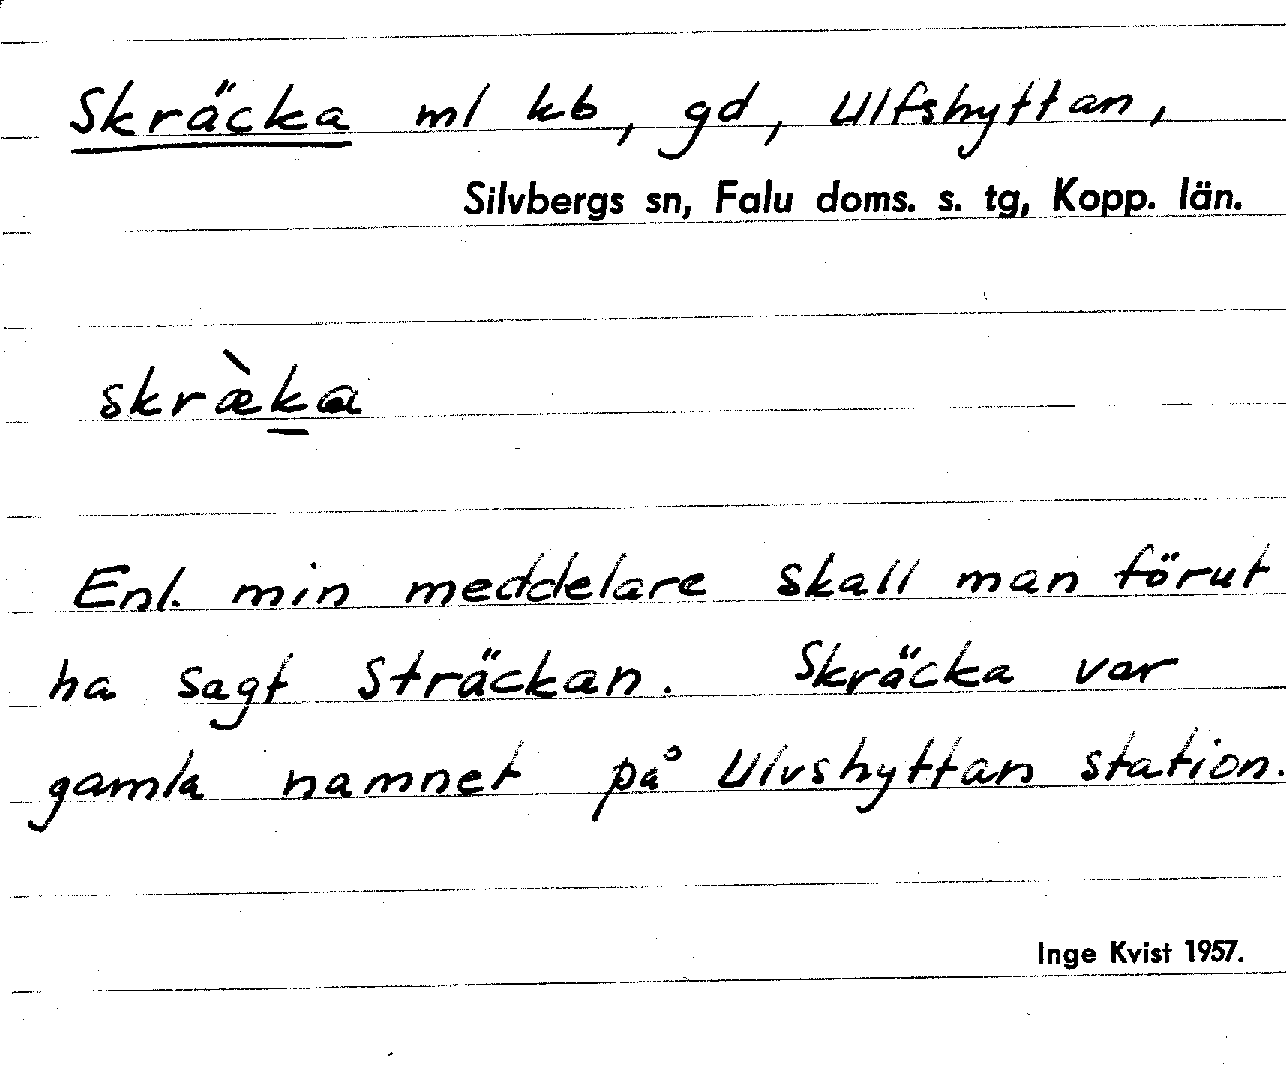 Skräcka ml kb, gd, Ulfshyttan,
Silvbergs sn, Falu doms. s. tg, Kopp. län.
skræ̀ka
Enl. min meddelare skall man förut
ha sagt Sträckan. Skräcka var
gamla namnet på Ulvshyttan station.
Inge Kvist 1957.